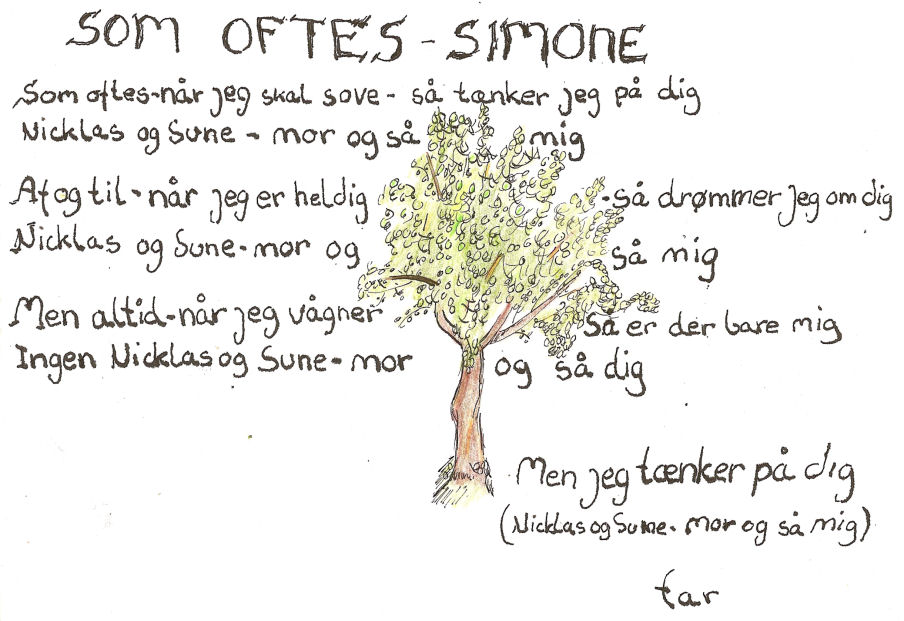 SOM OFTES - SIMONE
Som oftes-når jeg skal sove - så tænker jeg på dig
Nicklas og Sune - mor og så mig
Af og til - når jeg er heldig - så drømmer jeg om dig
Nicklas og Sune - mor og så mig
Men altid - når jeg vågner Så er der bare mig
Ingen Nicklas og Sune - mor og så dig
Men jeg tænker på dig
(Nicklas og Sune - mor og så mig)
far